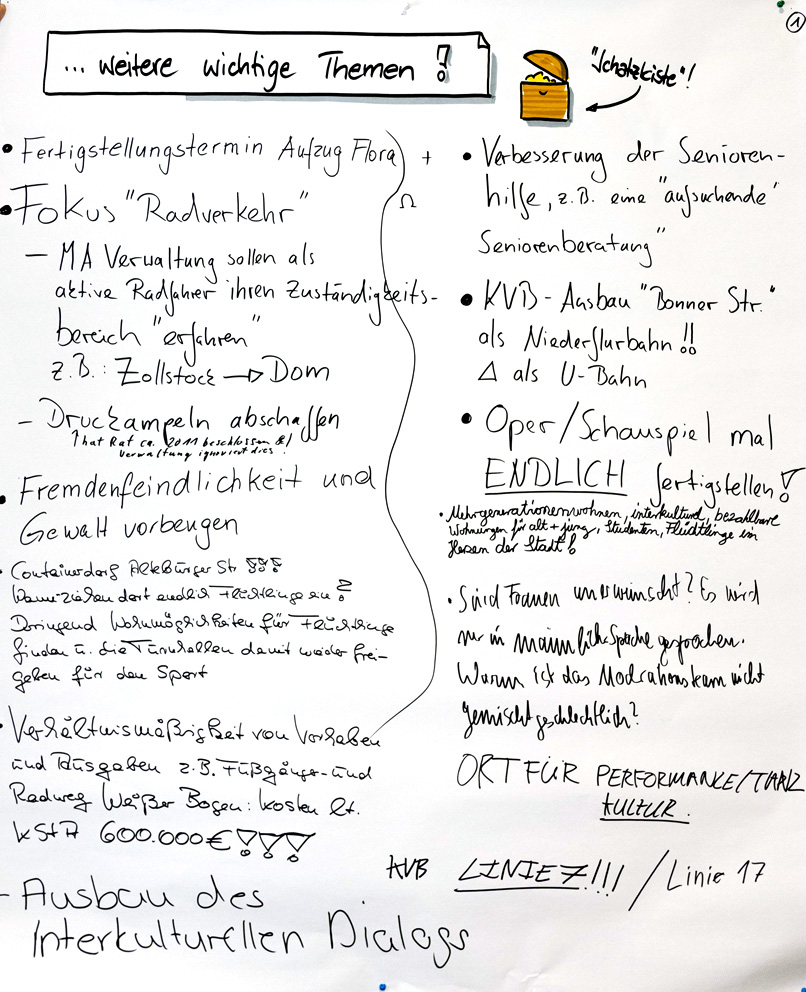 1
... weitere wichtige Themen!
"Schatzkiste"!
• Fertigstellungstermin Aufzug Flora +
• Fokus "Radverkehr" Ω
– MA Verwaltung sollen als
aktive Radfahrer ihren Zuständigkeits-
bereich "erfahren"
z.B.: Zollstock → Dom
– Druckampeln abschaffen
↑ hat Rat ca. 2011 beschlossen &
Verwaltung ignoriert dies.
• Fremdenfeindlichkeit und
Gewalt vorbeugen
• Containerdorf Str !!!
Wann ziehen dort endlich Flüchtlinge ein?
Dringend Wohnmöglichkeiten für Flüchtlinge
finden u. die Turnhallen damit wieder frei-
geben für den Sport
• Verhältnismäßigkeit von Vorhaben
und Ausgaben z.B. Fußgänger- und
Radweg Weißer Bogen: Kosten lt.
KStA 600.000€!!!
– Ausbau des
Interkulturellen Dialogs
• Verbesserung der Senioren-
hilfe, z.B. eine "aufsuchende"
Seniorenberatung"
• KVB-Ausbau "Bonner Str."
als Niederflurbahn!!
Δ als U-Bahn
• Oper/Schauspiel mal
ENDLICH fertigstellen!
• Mehrgenerationenwohnen, interkulturell, bezahlbare
Wohnungen für alt + jung, Studenten, Flüchtlinge im
Herzen der Stadt!
• Sind Frauen unerwünscht? Es wird
nur in männlich. Sprache gesprochen.
Warum ist das Modrationsteam nicht
gemischtgeschlechtlich?
ORT FÜR PERFORMANCE/TANZ
KULTUR.
KVB LINIE 7!!! / Linie 17